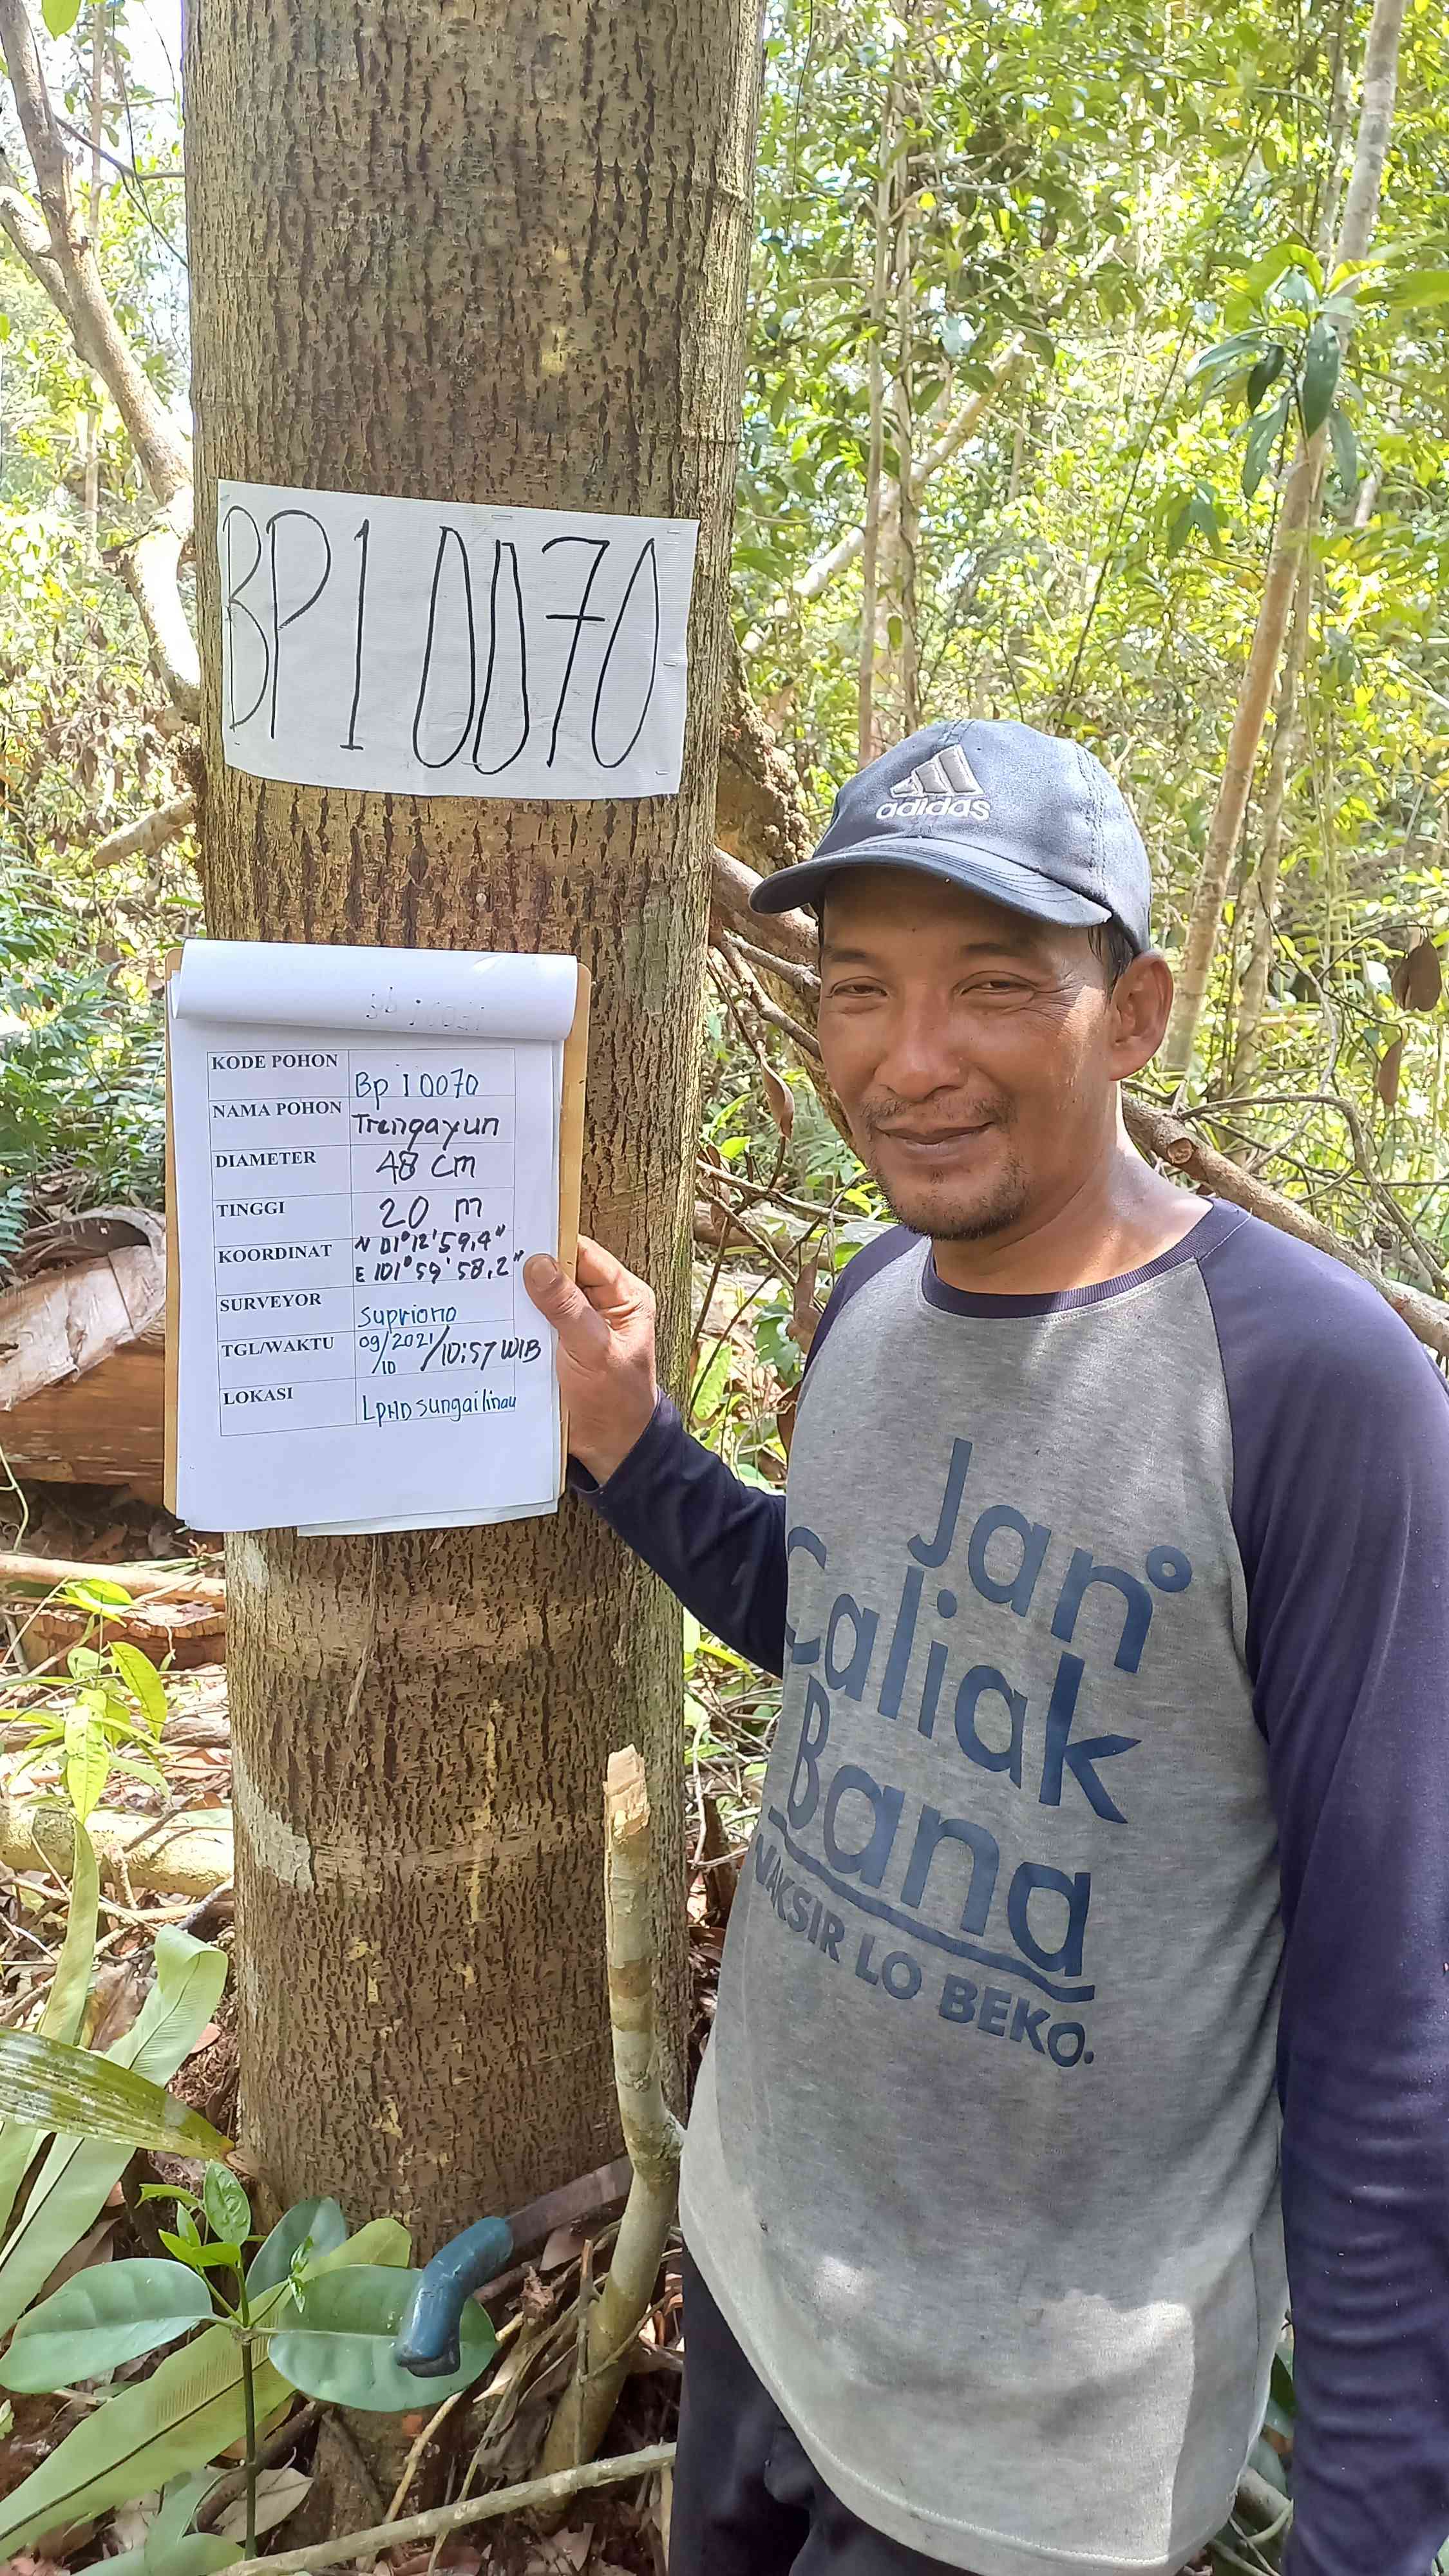 BP I 0070
adidas
KODE POHON Bp i 0070
NAMA POHON Trengayun
DIAMETER 48 cm
TINGGI 20 m
KOORDINAT N 01° 12' 59,4"
E 101° 59' 58,2"
SURVEYOR Supriono
TGL/WAKTU 09/2021/10 /10:57 WIB
LOKASI LPHD Sungai linau
Jan°
Caliak
Bana
NAKSIR LO BEKO.